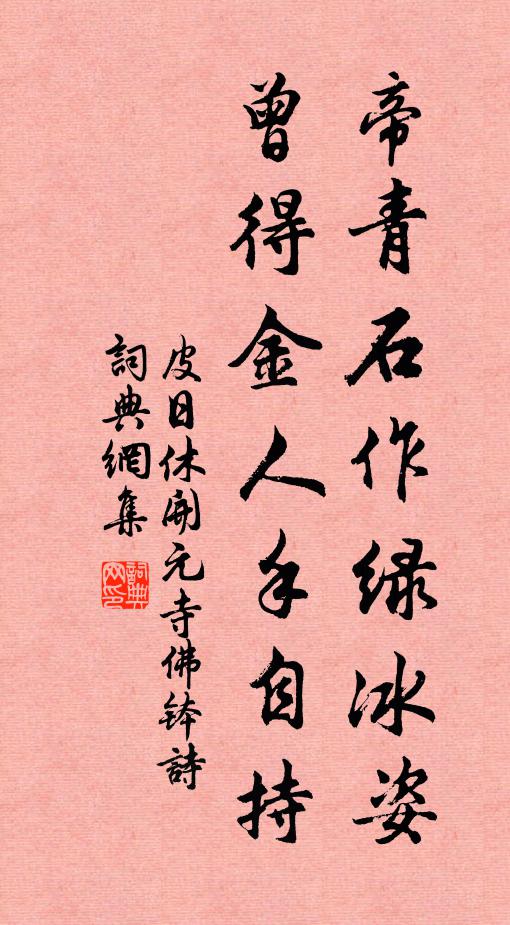 帝青石作緑冰姿
曾得金人手自持
皮日休開元寺佛鉢詩
詞典網集
詞典網印